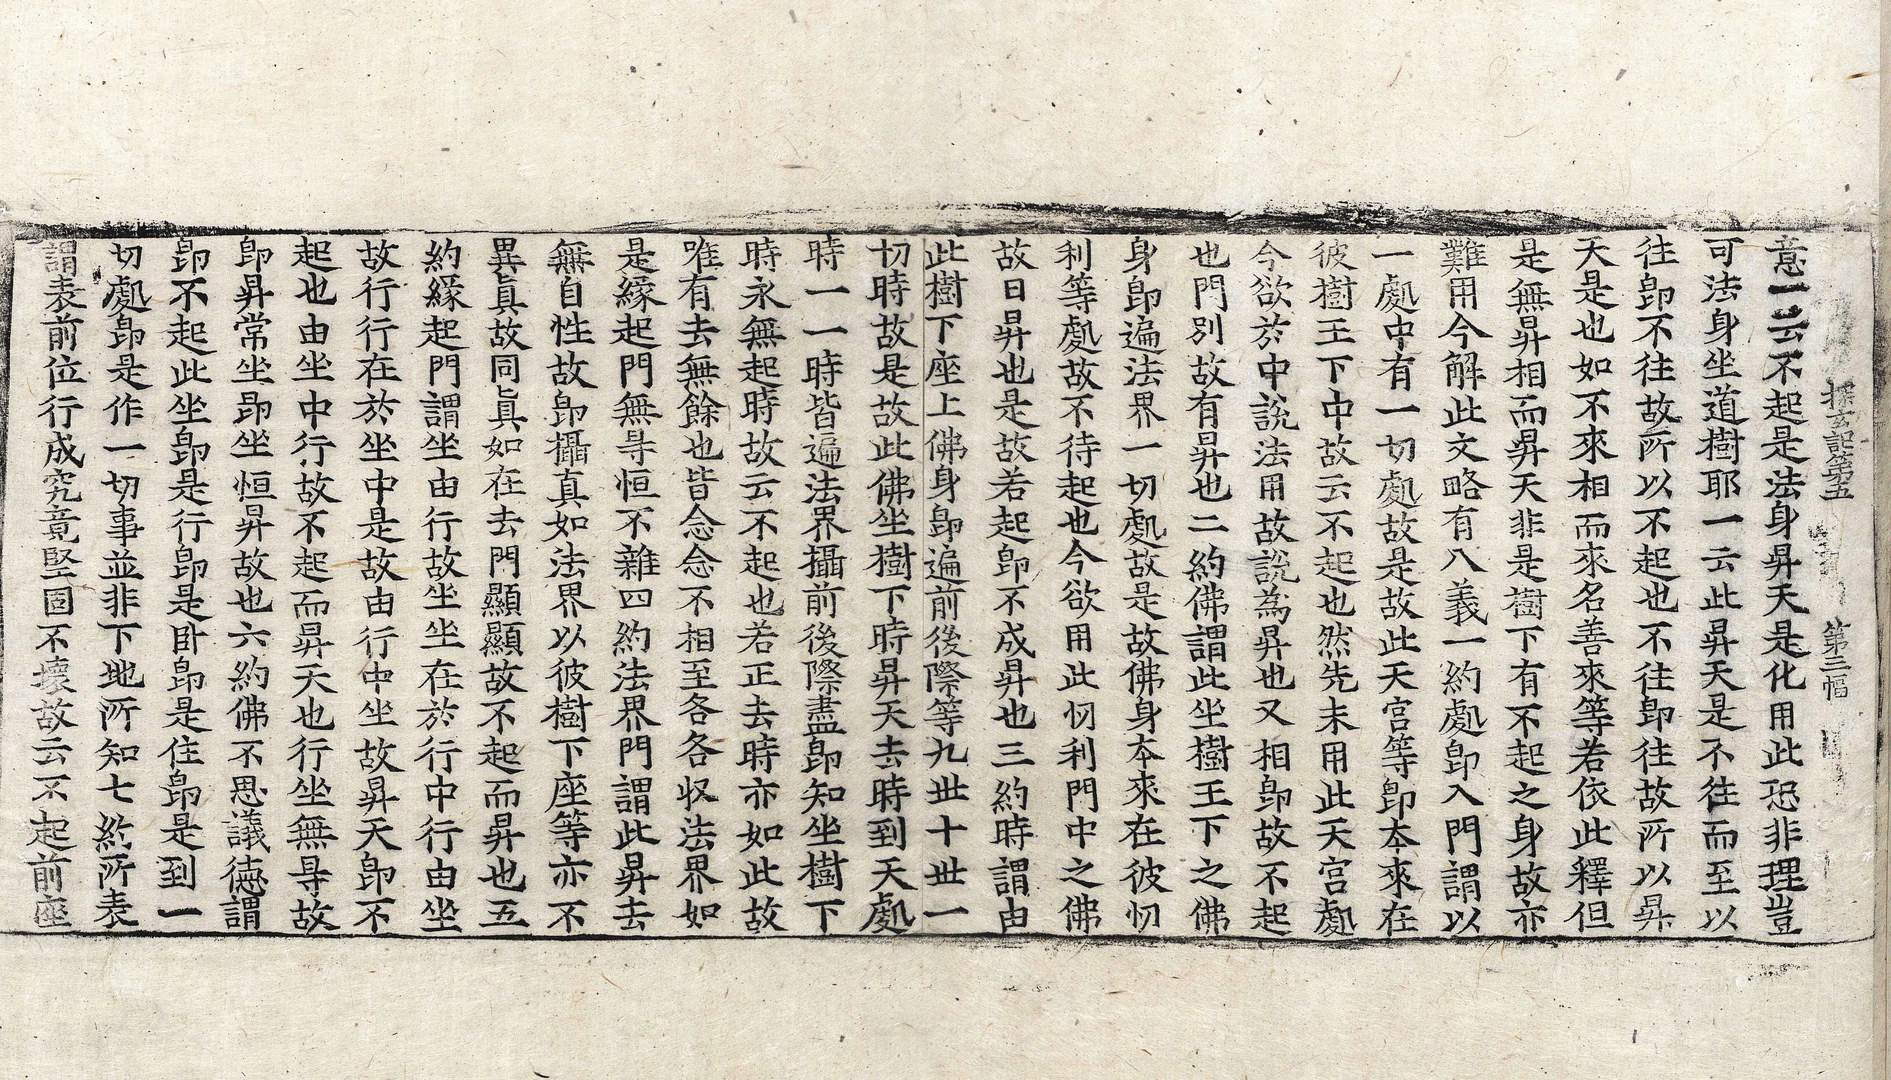 探玄記第五　第三幅
意一云不起是法身昇天是化用此恐非理豈
可法身坐道樹耶一云此昇天是不往而至以
往即不往故所以不起也不往即往故所以昇
天是也如不來相而來名善來等若依此釋但
是無昇相而昇天非是樹下有不起之身故亦
難用今解此文略有八義一約處即入門謂以
一處中有一切處故是故此天宮等即本來在
彼樹王下中故云不起也然先未用此天宮處
今欲於中說法用故說為昇也又相即故不起
也門別故有昇也二約佛謂此坐樹王下之佛
身即遍法界一切處故是故佛身本來在彼忉
利等處故不待起也今欲用此忉利門中之佛
故曰昇也是故若起即不成昇也三約時謂由
此樹下座上佛身即遍前後際等九世十世一
切時故是故此佛坐樹下時昇天去時到天處
時一一時皆遍法界攝前後際盡即知坐樹下
時永無起時故云不起也若正去時亦如此故
唯有去無餘也皆念念不相至各各收法界如
是緣起門無㝵恒不雜四約法界門謂此昇去
無自性故即攝真如法界以彼樹下座等亦不
異真故同真如在去門顯顯故不起而昇也五
約緣起門謂坐由行故坐坐在於行中行由坐
故行行在於坐中是故由行中坐故昇天即不
起也由坐中行故不起而昇天也行坐無㝵故
即昇常坐即坐恒昇故也六約佛不思議德謂
即不起此坐即是行即是臥即是住即是到一
切處即是作一切事並非下地所知七約所表
謂表前位行成究竟堅固不壞故云不起前座